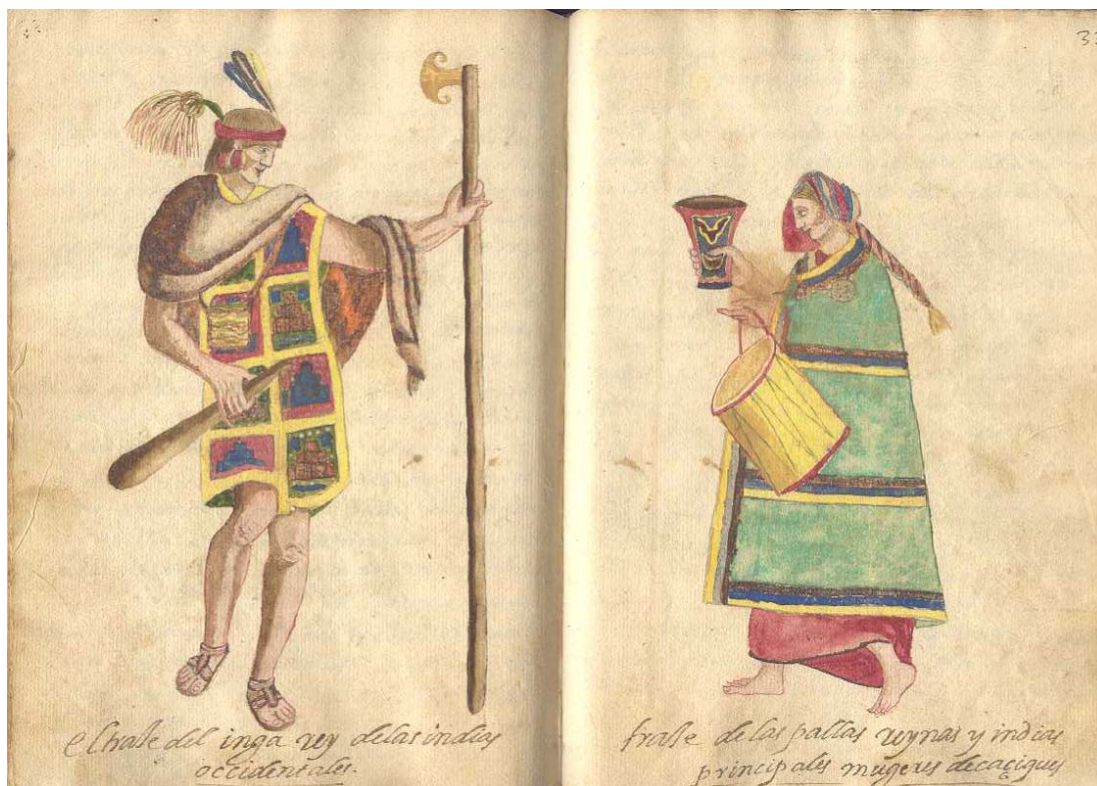 el traje del inga rey de las indias
occidentales.
33
traje de las pallas reynas y indias
principales mugeres de caçiques